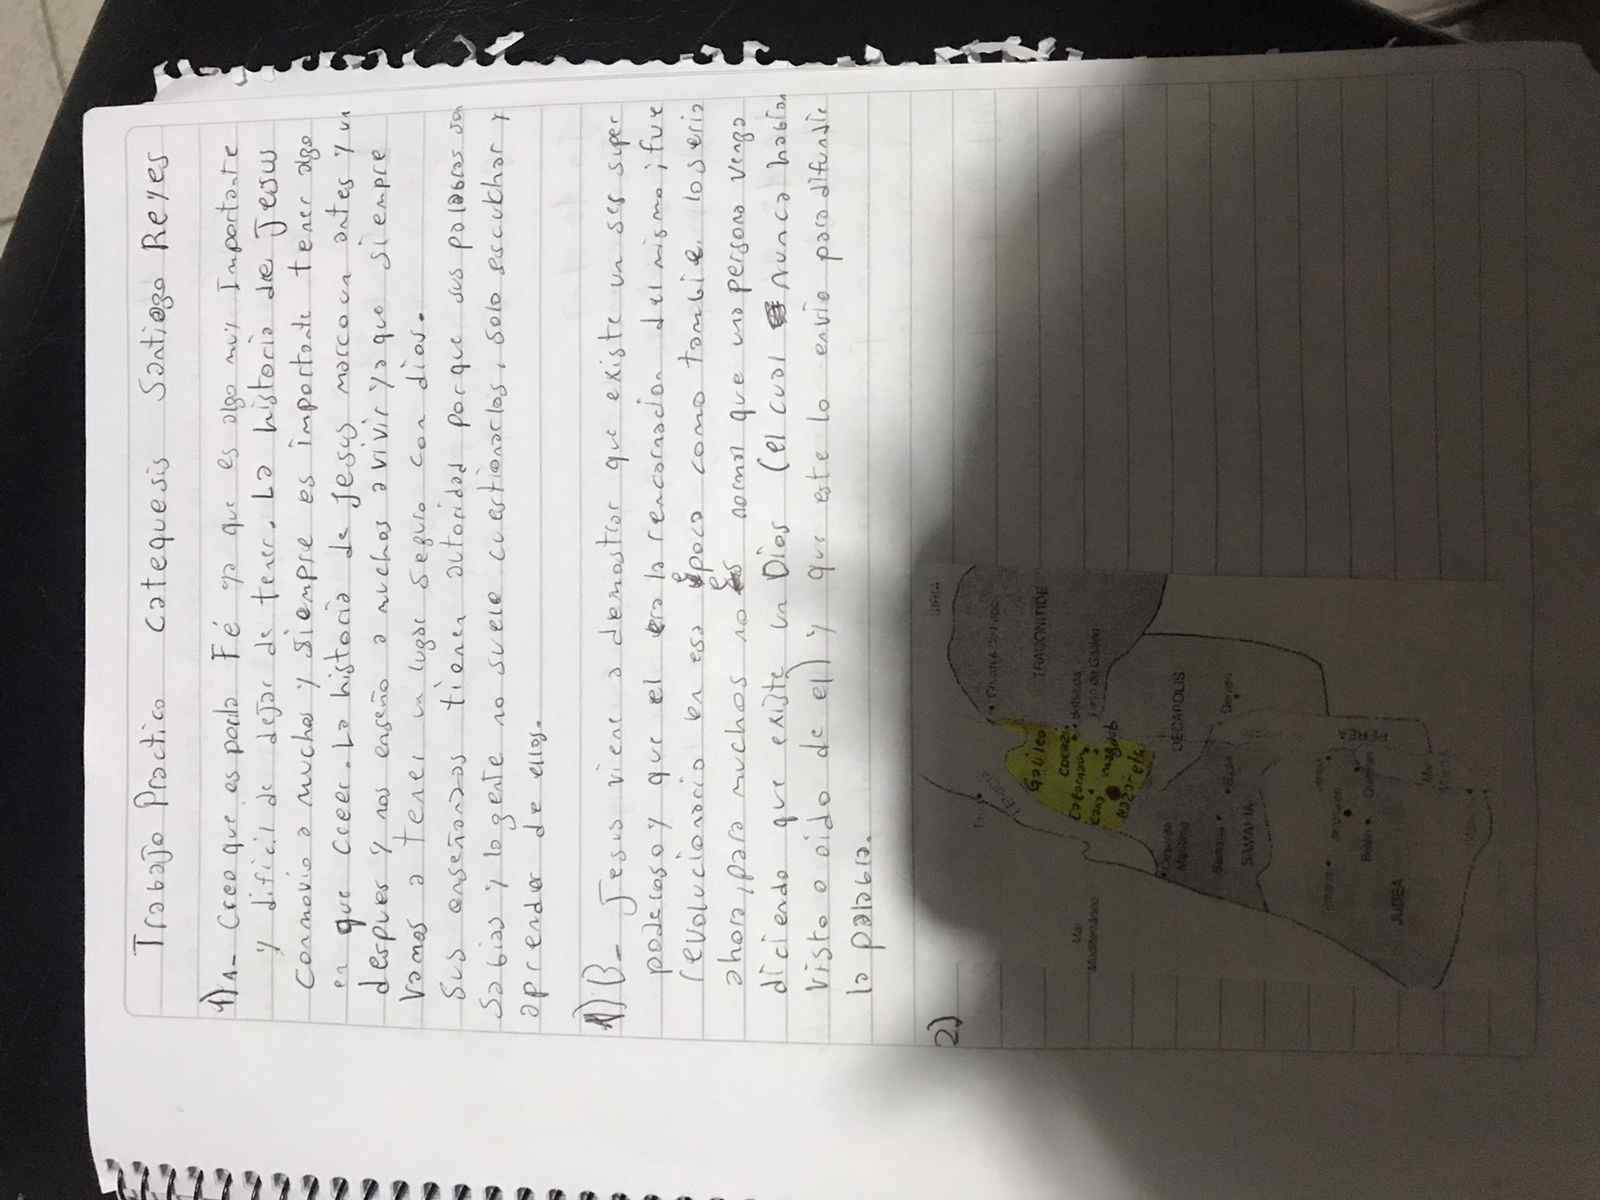 Trabajo Practico Catequesis Santiago Reyes
1) A- Creo que es por la Fé ya que es algo muy Importante
y dificil de dejar de tener. La historia de Jesus
conmovio a muchos y siempre es importante tener algo
en que creer. La historia de Jesus marco un antes y un
despues y nos enseño a muchos a vivir ya que siempre
vamos a tener un lugar seguro con dios.
Sus enseñanzas tienen autoridad porque sus palabras son
Sabias y la gente no suele cuestionarlas, solo escuchar y
aprender de ellos.
1) B- Jesus viene a demostrar que existe un ser super
poderoso y que el era la reencarnacion del mismo; fue
revolucionario en esa época como tambie lo seria
ahora, para muchos no es normal que una persona venga
diciendo que existe un Dios (el cual nunca habian
visto o oido de el) y que este lo envio para difundir
la palabra.
2)
TRACONITIDE
Galilea
Corozain
Cafarnaúm
Cana
Magdala
Nazaret
DECAPOLIS
Mar
Mediterráneo
Cesarea
Marítima
SAMARIA
Belén
JUDEA
Mar
Muerto